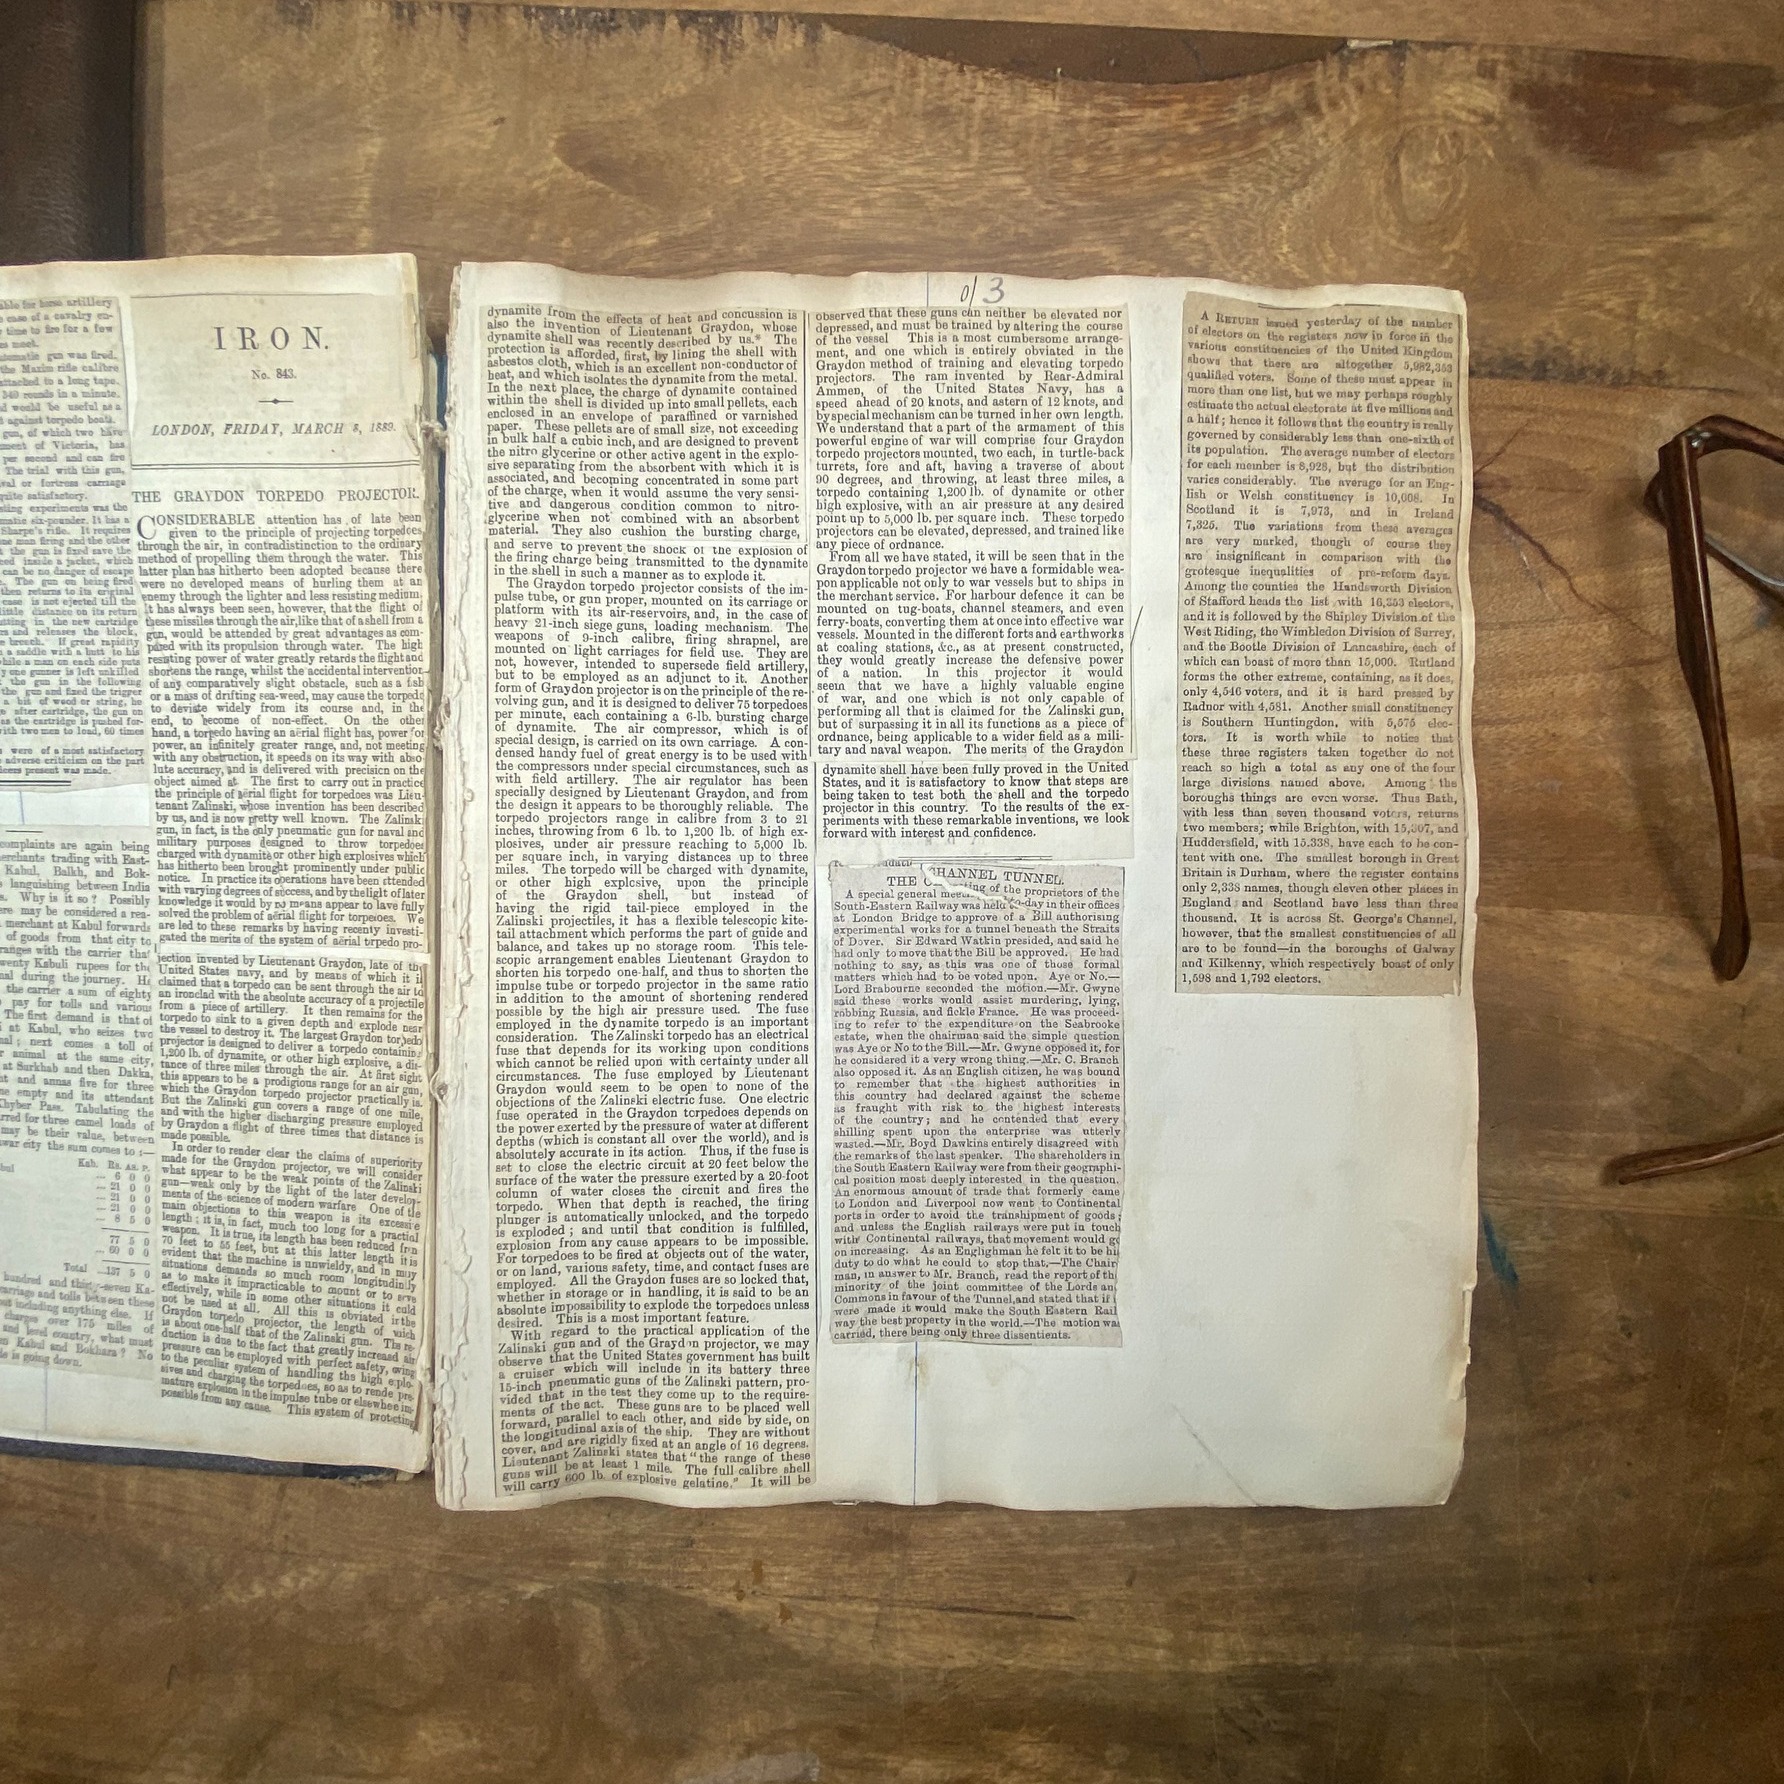 able for horse artillery
case of a cavalry en-
time to fire for a few
meet.
automatic gun was fired,
the Maxim rifle calibre
attached to a long tape.
340 rounds in a minute.
would be useful as a
against torpedo boats.
gun, of which two have
ment of Victoria, has
per second and can fire
The trial with this gun,
val or fortress carriage
quite satisfactory.
sting experiments was the
matic six-pounder. It has a
Sharpe's rifle. It requires
one man firing and the other
the gun is fixed save the
ced inside a jacket, which
can be no danger of escape
The gun on being fired
then returns to its original
case is not ejected till the
little distance on its return
utting in the new cartridge
rs and releases the block,
breech. If great rapidity
a saddle with a butt to his
while a man on each side puts
y one gunner is left unkilled
the gun in the following
the gun and fixed the trigger
a bit of wood or string, he
after cartridge, the gun on
as the cartridge is pushed for-
with two men to load, 60 times
were of a most satisfactory
adverse criticism on the part
officers present was made.
complaints are again being
merchants trading with East-
Kabul, Balkh, and Bok-
languishing between India
Why is it so? Possibly
ere may be considered a rea-
merchant at Kabul forwards
of goods from that city to
ranges with the carrier that
wenty Kabuli rupees for the
nal during the journey. He
the carrier a sum of eighty
pay for tolls and various
The first demand is that of
at Kabul, who seizes two
nal; next comes a toll of
animal at the same city,
at Surkhab and then Dakka,
and annas five for three
empty and its attendant
Khyber Pass. Tabulating the
rred for three camel loads of
may be their value, between
war city the sum comes to :—
Kab. Rs. AS. P.
... 6 0 0
... 21 0 0
... 21 0 0
... 21 0 0
... 8 5 0
77 5 0
... 60 0 0
Total ...137 5 0
hundred and thirty-seven Ka-
carriage and tolls between these
not including anything else. If
charges over 175 miles of
and level country, what must
Kabul and Bokhara? No
is going down.
IRON.
No. 843.
LONDON, FRIDAY, MARCH 8, 1889.
THE GRAYDON TORPEDO PROJECTOR.
CONSIDERABLE attention has of late been
given to the principle of projecting torpedoes
through the air, in contradistinction to the ordinary
method of propelling them through the water. This
latter plan has hitherto been adopted because there
were no developed means of hurling them at an
enemy through the lighter and less resisting medium.
It has always been seen, however, that the flight of
these missiles through the air, like that of a shell from a
gun, would be attended by great advantages as com-
pared with its propulsion through water. The high
resisting power of water greatly retards the flight and
shortens the range, whilst the accidental intervention
of any comparatively slight obstacle, such as a fish
or a mass of drifting sea-weed, may cause the torpedo
to deviate widely from its course and, in the
end, to become of non-effect. On the other
hand, a torpedo having an aërial flight has, power for
power, an infinitely greater range, and, not meeting
with any obstruction, it speeds on its way with abso-
lute accuracy, and is delivered with precision on the
object aimed at. The first to carry out in practice
the principle of aërial flight for torpedoes was Lieu-
tenant Zalinski, whose invention has been described
by us, and is now pretty well known. The Zalinski
gun, in fact, is the only pneumatic gun for naval and
military purposes designed to throw torpedoes
charged with dynamite or other high explosives which
has hitherto been brought prominently under public
notice. In practice its operations have been attended
with varying degrees of success, and by the light of later
knowledge it would by no means appear to have fully
solved the problem of aërial flight for torpedoes. We
are led to these remarks by having recently investi-
gated the merits of the system of aërial torpedo pro-
jection invented by Lieutenant Graydon, late of the
United States navy, and by means of which it is
claimed that a torpedo can be sent through the air to
an ironclad with the absolute accuracy of a projectile
from a piece of artillery. It then remains for the
torpedo to sink to a given depth and explode near
the vessel to destroy it. The largest Graydon torpedo
projector is designed to deliver a torpedo containing
1,200 lb. of dynamite, or other high explosive, a dis-
tance of three miles through the air. At first sight
this appears to be a prodigious range for an air gun,
which the Graydon torpedo projector practically is.
But the Zalinski gun covers a range of one mile,
and with the higher discharging pressure employed
by Graydon a flight of three times that distance is
made possible.
In order to render clear the claims of superiority
made for the Graydon projector, we will consider
what appear to be the weak points of the Zalinski
gun—weak only by the light of the later develop-
ments of the science of modern warfare One of the
main objections to this weapon is its excessive
length; it is, in fact, much too long for a practical
weapon. It is true, its length has been reduced from
70 feet to 55 feet, but at this latter length it is
evident that the machine is unwieldy, and in many
situations demands so much room longitudinally
as to make it impracticable to mount or to serve
effectively, while in some other situations it could
not be used at all. All this is obviated in the
Graydon torpedo projector, the length of which
is about one-half that of the Zalinski gun. The re-
duction is due to the fact that greatly increased air
pressure can be employed with perfect safety, owing
to the peculiar system of handling the high explo-
sives and charging the torpedoes, so as to rende pre-
mature explosion in the impulse tube or elsewhere im-
possible from any cause. This system of protecting
0/3
dynamite from the effects of heat and concussion is
also the invention of Lieutenant Graydon, whose
dynamite shell was recently described by us.* The
protection is afforded, first, by lining the shell with
asbestos cloth, which is an excellent non-conductor of
heat, and which isolates the dynamite from the metal.
In the next place, the charge of dynamite contained
within the shell is divided up into small pellets, each
enclosed in an envelope of paraffined or varnished
paper. These pellets are of small size, not exceeding
in bulk half a cubic inch, and are designed to prevent
the nitro glycerine or other active agent in the explo-
sive separating from the absorbent with which it is
associated, and becoming concentrated in some part
of the charge, when it would assume the very sensi-
tive and dangerous condition common to nitro-
glycerine when not combined with an absorbent
material. They also cushion the bursting charge,
and serve to prevent the shock of the explosion of
the firing charge being transmitted to the dynamite
in the shell in such a manner as to explode it.
The Graydon torpedo projector consists of the im-
pulse tube, or gun proper, mounted on its carriage or
platform with its air-reservoirs, and, in the case of
heavy 21-inch siege guns, loading mechanism. The
weapons of 9-inch calibre, firing shrapnel, are
mounted on light carriages for field use. They are
not, however, intended to supersede field artillery,
but to be employed as an adjunct to it. Another
form of Graydon projector is on the principle of the re-
volving gun, and it is designed to deliver 75 torpedoes
per minute, each containing a 6-lb. bursting charge
of dynamite. The air compressor, which is of
special design, is carried on its own carriage. A con-
densed handy fuel of great energy is to be used with
the compressors under special circumstances, such as
with field artillery. The air regulator has been
specially designed by Lieutenant Graydon, and from
the design it appears to be thoroughly reliable. The
torpedo projectors range in calibre from 3 to 21
inches, throwing from 6 lb. to 1,200 lb. of high ex-
plosives, under air pressure reaching to 5,000 lb.
per square inch, in varying distances up to three
miles. The torpedo will be charged with dynamite,
or other high explosive, upon the principle
of the Graydon shell, but instead of
having the rigid tail-piece employed in the
Zalinski projectiles, it has a flexible telescopic kite-
tail attachment which performs the part of guide and
balance, and takes up no storage room. This tele-
scopic arrangement enables Lieutenant Graydon to
shorten his torpedo one-half, and thus to shorten the
impulse tube or torpedo projector in the same ratio
in addition to the amount of shortening rendered
possible by the high air pressure used. The fuse
employed in the dynamite torpedo is an important
consideration. The Zalinski torpedo has an electrical
fuse that depends for its working upon conditions
which cannot be relied upon with certainty under all
circumstances. The fuse employed by Lieutenant
Graydon would seem to be open to none of the
objections of the Zalinski electric fuse. One electric
fuse operated in the Graydon torpedoes depends on
the power exerted by the pressure of water at different
depths (which is constant all over the world), and is
absolutely accurate in its action. Thus, if the fuse is
set to close the electric circuit at 20 feet below the
surface of the water the pressure exerted by a 20-foot
column of water closes the circuit and fires the
torpedo. When that depth is reached, the firing
plunger is automatically unlocked, and the torpedo
is exploded; and until that condition is fulfilled,
explosion from any cause appears to be impossible.
For torpedoes to be fired at objects out of the water,
or on land, various safety, time, and contact fuses are
employed. All the Graydon fuses are so locked that,
whether in storage or in handling, it is said to be an
absolute impossibility to explode the torpedoes unless
desired. This is a most important feature.
With regard to the practical application of the
Zalinski gun and of the Graydon projector, we may
observe that the United States government has built
a cruiser which will include in its battery three
15-inch pneumatic guns of the Zalinski pattern, pro-
vided that in the test they come up to the require-
ments of the act. These guns are to be placed well
forward, parallel to each other, and side by side, on
the longitudinal axis of the ship. They are without
cover, and are rigidly fixed at an angle of 16 degrees.
Lieutenant Zalinski states that "the range of these
guns will be at least 1 mile. The full calibre shell
will carry 600 lb. of explosive gelatine." It will be
observed that these guns can neither be elevated nor
depressed, and must be trained by altering the course
of the vessel This is a most cumbersome arrange-
ment, and one which is entirely obviated in the
Graydon method of training and elevating torpedo
projectors. The ram invented by Rear-Admiral
Ammen, of the United States Navy, has a
speed ahead of 20 knots, and astern of 12 knots, and
by special mechanism can be turned in her own length.
We understand that a part of the armament of this
powerful engine of war will comprise four Graydon
torpedo projectors mounted, two each, in turtle-back
turrets, fore and aft, having a traverse of about
90 degrees, and throwing, at least three miles, a
torpedo containing 1,200 lb. of dynamite or other
high explosive, with an air pressure at any desired
point up to 5,000 lb. per square inch. These torpedo
projectors can be elevated, depressed, and trained like
any piece of ordnance.
From all we have stated, it will be seen that in the
Graydon torpedo projector we have a formidable wea-
pon applicable not only to war vessels but to ships in
the merchant service. For harbour defence it can be
mounted on tug-boats, channel steamers, and even
ferry-boats, converting them at once into effective war
vessels. Mounted in the different forts and earthworks
at coaling stations, &c., as at present constructed,
they would greatly increase the defensive power
of a nation. In this projector it would
seem that we have a highly valuable engine
of war, and one which is not only capable of
performing all that is claimed for the Zalinski gun,
but of surpassing it in all its functions as a piece of
ordnance, being applicable to a wider field as a mili-
tary and naval weapon. The merits of the Graydon
dynamite shell have been fully proved in the United
States, and it is satisfactory to know that steps are
being taken to test both the shell and the torpedo
projector in this country. To the results of the ex-
periments with these remarkable inventions, we look
forward with interest and confidence.
THE CHANNEL TUNNEL.
A special general meeting of the proprietors of the
South-Eastern Railway was held to-day in their offices
at London Bridge to approve of a Bill authorising
experimental works for a tunnel beneath the Straits
of Dover. Sir Edward Watkin presided, and said he
had only to move that the Bill be approved. He had
nothing to say, as this was one of those formal
matters which had to be voted upon. Aye or No.—
Lord Brabourne seconded the motion.—Mr. Gwyne
said these works would assist murdering, lying,
robbing Russia, and fickle France. He was proceed-
ing to refer to the expenditure on the Seabrooke
estate, when the chairman said the simple question
was Aye or No to the Bill.—Mr. Gwyne opposed it, for
he considered it a very wrong thing.—Mr. C. Branch
also opposed it. As an English citizen, he was bound
to remember that the highest authorities in
this country had declared against the scheme
as fraught with risk to the highest interests
of the country; and he contended that every
shilling spent upon the enterprise was utterly
wasted.—Mr. Boyd Dawkins entirely disagreed with
the remarks of the last speaker. The shareholders in
the South Eastern Railway were from their geographi-
cal position most deeply interested in the question.
An enormous amount of trade that formerly came
to London and Liverpool now went to Continental
ports in order to avoid the transhipment of goods;
and unless the English railways were put in touch
with Continental railways, that movement would go
on increasing. As an Englighman he felt it to be his
duty to do what he could to stop that.—The Chair
man, in answer to Mr. Branch, read the report of the
minority of the joint committee of the Lords an
Commons in favour of the Tunnel, and stated that if i
were made it would make the South Eastern Rail
way the best property in the world.—The motion wa
carried, there being only three dissentients.
A RETURN issued yesterday of the number
of electors on the registers now in force in the
various constituencies of the United Kingdom
shows that there are altogether 5,982,353
qualified voters. Some of these must appear in
more than one list, but we may perhaps roughly
estimate the actual electorate at five millions and
a half; hence it follows that the country is really
governed by considerably less than one-sixth of
its population. The average number of electors
for each member is 8,928, but the distribution
varies considerably. The average for an Eng-
lish or Welsh constituency is 10,008. In
Scotland it is 7,973, and in Ireland
7,325. The variations from these averages
are very marked, though of course they
are insignificant in comparison with the
grotesque inequalities of pre-reform days.
Among the counties the Handsworth Division
of Stafford heads the list with 16,353 electors,
and it is followed by the Shipley Division of the
West Riding, the Wimbledon Division of Surrey,
and the Bootle Division of Lancashire, each of
which can boast of more than 15,000. Rutland
forms the other extreme, containing, as it does,
only 4,546 voters, and it is hard pressed by
Radnor with 4,581. Another small constituency
is Southern Huntingdon, with 5,575 elec-
tors. It is worth while to notice that
these three registers taken together do not
reach so high a total as any one of the four
large divisions named above. Among the
boroughs things are even worse. Thus Bath,
with less than seven thousand voters, returns
two members; while Brighton, with 15,307, and
Huddersfield, with 15,338, have each to be con-
tent with one. The smallest borough in Great
Britain is Durham, where the register contains
only 2,338 names, though eleven other places in
England and Scotland have less than three
thousand. It is across St. George's Channel,
however, that the smallest constituencies of all
are to be found—in the boroughs of Galway
and Kilkenny, which respectively boast of only
1,598 and 1,792 electors.